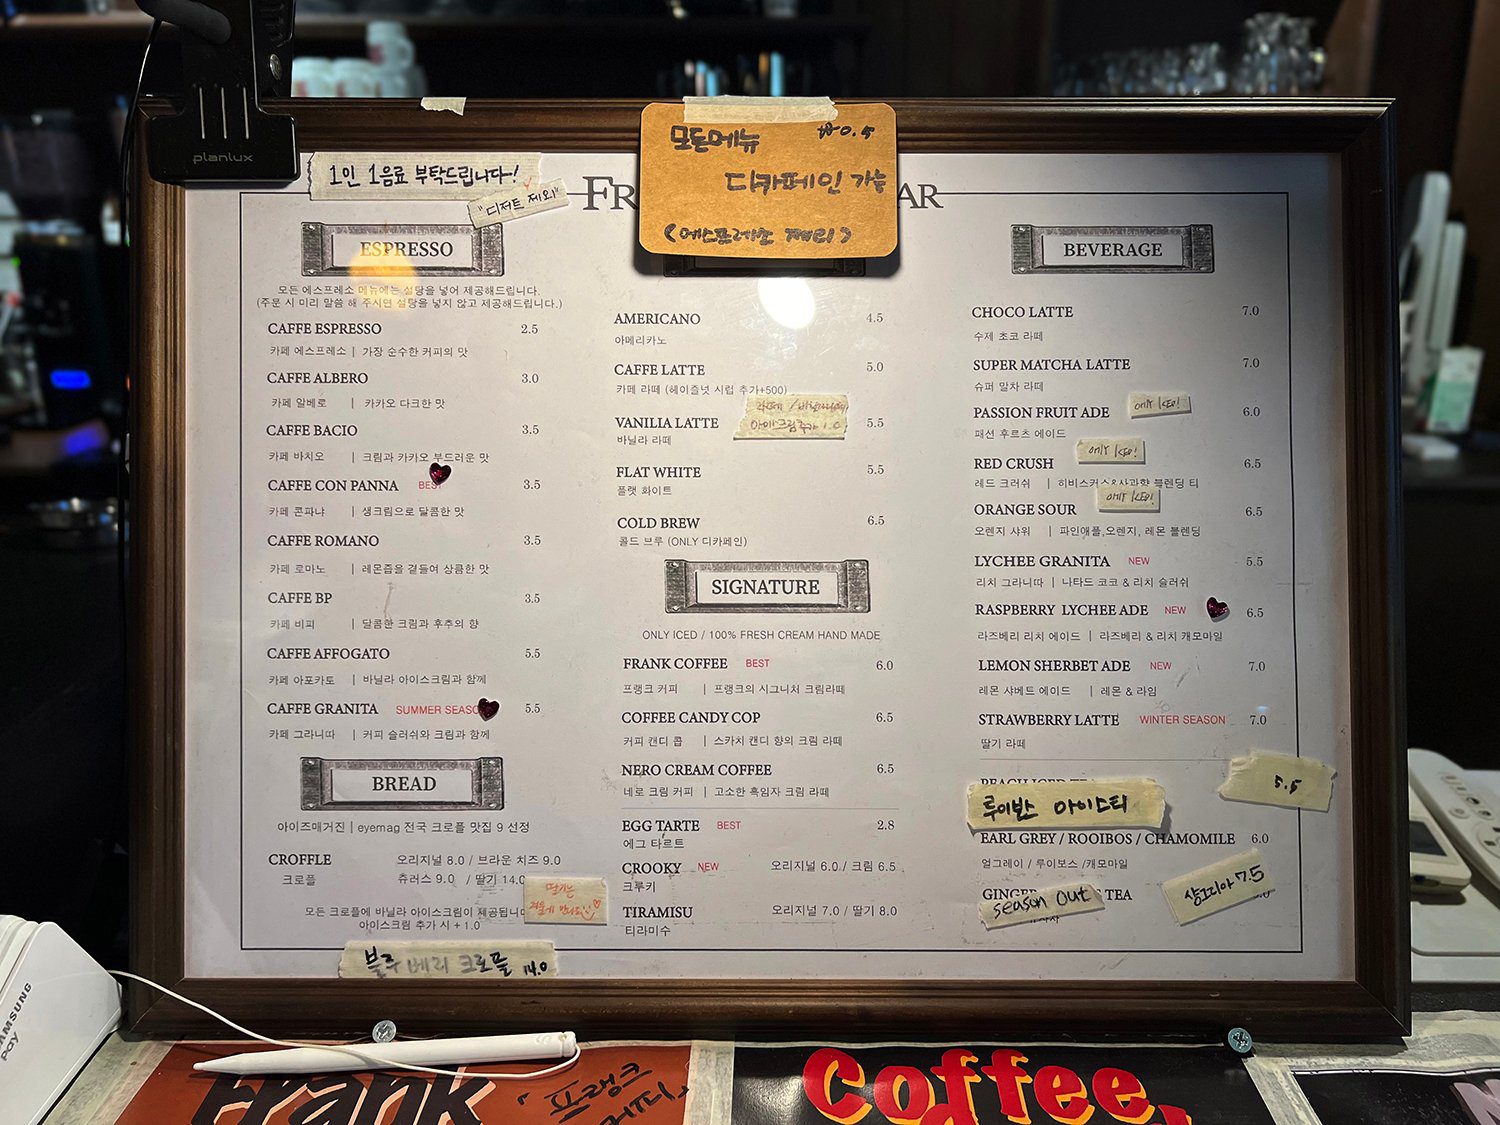 planlux
1인 1음료 부탁드립니다!
"디저트 제외"
모든메뉴 ₩0.5
디카페인 가능
(에스프레소 제외)
FR AR
ESPRESSO
모든 에스프레소 메뉴에는 설탕을 넣어 제공해드립니다.
(주문 시 미리 말씀 해 주시면 설탕을 넣지 않고 제공해드립니다.)
CAFFE ESPRESSO 2.5
카페 에스프레소 | 가장 순수한 커피의 맛
CAFFE ALBERO 3.0
카페 알베로 | 카카오 다크한 맛
CAFFE BACIO 3.5
카페 바치오 | 크림과 카카오 부드러운 맛
CAFFE CON PANNA BEST 3.5
카페 콘파냐 | 생크림으로 달콤한 맛
CAFFE ROMANO 3.5
카페 로마노 | 레몬즙을 곁들여 상큼한 맛
CAFFE BP 3.5
카페 비피 | 달콤한 크림과 후추의 향
CAFFE AFFOGATO 5.5
카페 아포카토 | 바닐라 아이스크림과 함께
CAFFE GRANITA SUMMER SEASO 5.5
카페 그라니따 | 커피 슬러쉬와 크림과 함께
BREAD
아이즈매거진 | eyemag 전국 크로플 맛집 9 선정
CROFFLE 오리지널 8.0 / 브라운 치즈 9.0
크로플 츄러스 9.0 / 딸기 14.0
딸기는
겨울에 만나요
모든 크로플에 바닐라 아이스크림이 제공됩니다
아이스크림 추가 시 + 1.0
블루베리 크로플 14.0
AMERICANO 4.5
아메리카노
CAFFE LATTE 5.0
카페 라떼 (헤이즐넛 시럽 추가+500)
아이스크림추가 1.0
VANILIA LATTE 5.5
바닐라 라떼
FLAT WHITE 5.5
플랫 화이트
COLD BREW 6.5
콜드 브루 (ONLY 디카페인)
SIGNATURE
ONLY ICED / 100% FRESH CREAM HAND MADE
FRANK COFFEE BEST 6.0
프랭크 커피 | 프랭크의 시그니처 크림라떼
COFFEE CANDY COP 6.5
커피 캔디 콥 | 스카치 캔디 향의 크림 라떼
NERO CREAM COFFEE 6.5
네로 크림 커피 | 고소한 흑임자 크림 라떼
EGG TARTE BEST 2.8
에그 타르트
CROOKY NEW 오리지널 6.0 / 크림 6.5
크루키
TIRAMISU 오리지널 7.0 / 딸기 8.0
티라미수
BEVERAGE
CHOCO LATTE 7.0
수제 초코 라떼
SUPER MATCHA LATTE 7.0
슈퍼 말차 라떼
PASSION FRUIT ADE only ICED! 6.0
패션 후르츠 에이드
RED CRUSH only ICED! 6.5
레드 크러쉬 | 히비스커스&사과향 블렌딩 티
ORANGE SOUR only ICED! 6.5
오렌지 샤워 | 파인애플,오렌지, 레몬 블렌딩
LYCHEE GRANITA NEW 5.5
리치 그라니따 | 나타드 코코 & 리치 슬러쉬
RASPBERRY LYCHEE ADE NEW 6.5
라즈베리 리치 에이드 | 라즈베리 & 리치 캐모마일
LEMON SHERBET ADE NEW 7.0
레몬 샤베드 에이드 | 레몬 & 라임
STRAWBERRY LATTE WINTER SEASON 7.0
딸기 라떼
PEACH ICED TEA
루이반스 아이스티 5.5
EARL GREY / ROOIBOS / CHAMOMILE 6.0
얼그레이 / 루이보스 /캐모마일
GINGER TEA
season out
샹그리아 7.5
SAMSUNG
pay
Frank
프랭크
커피
Coffee,